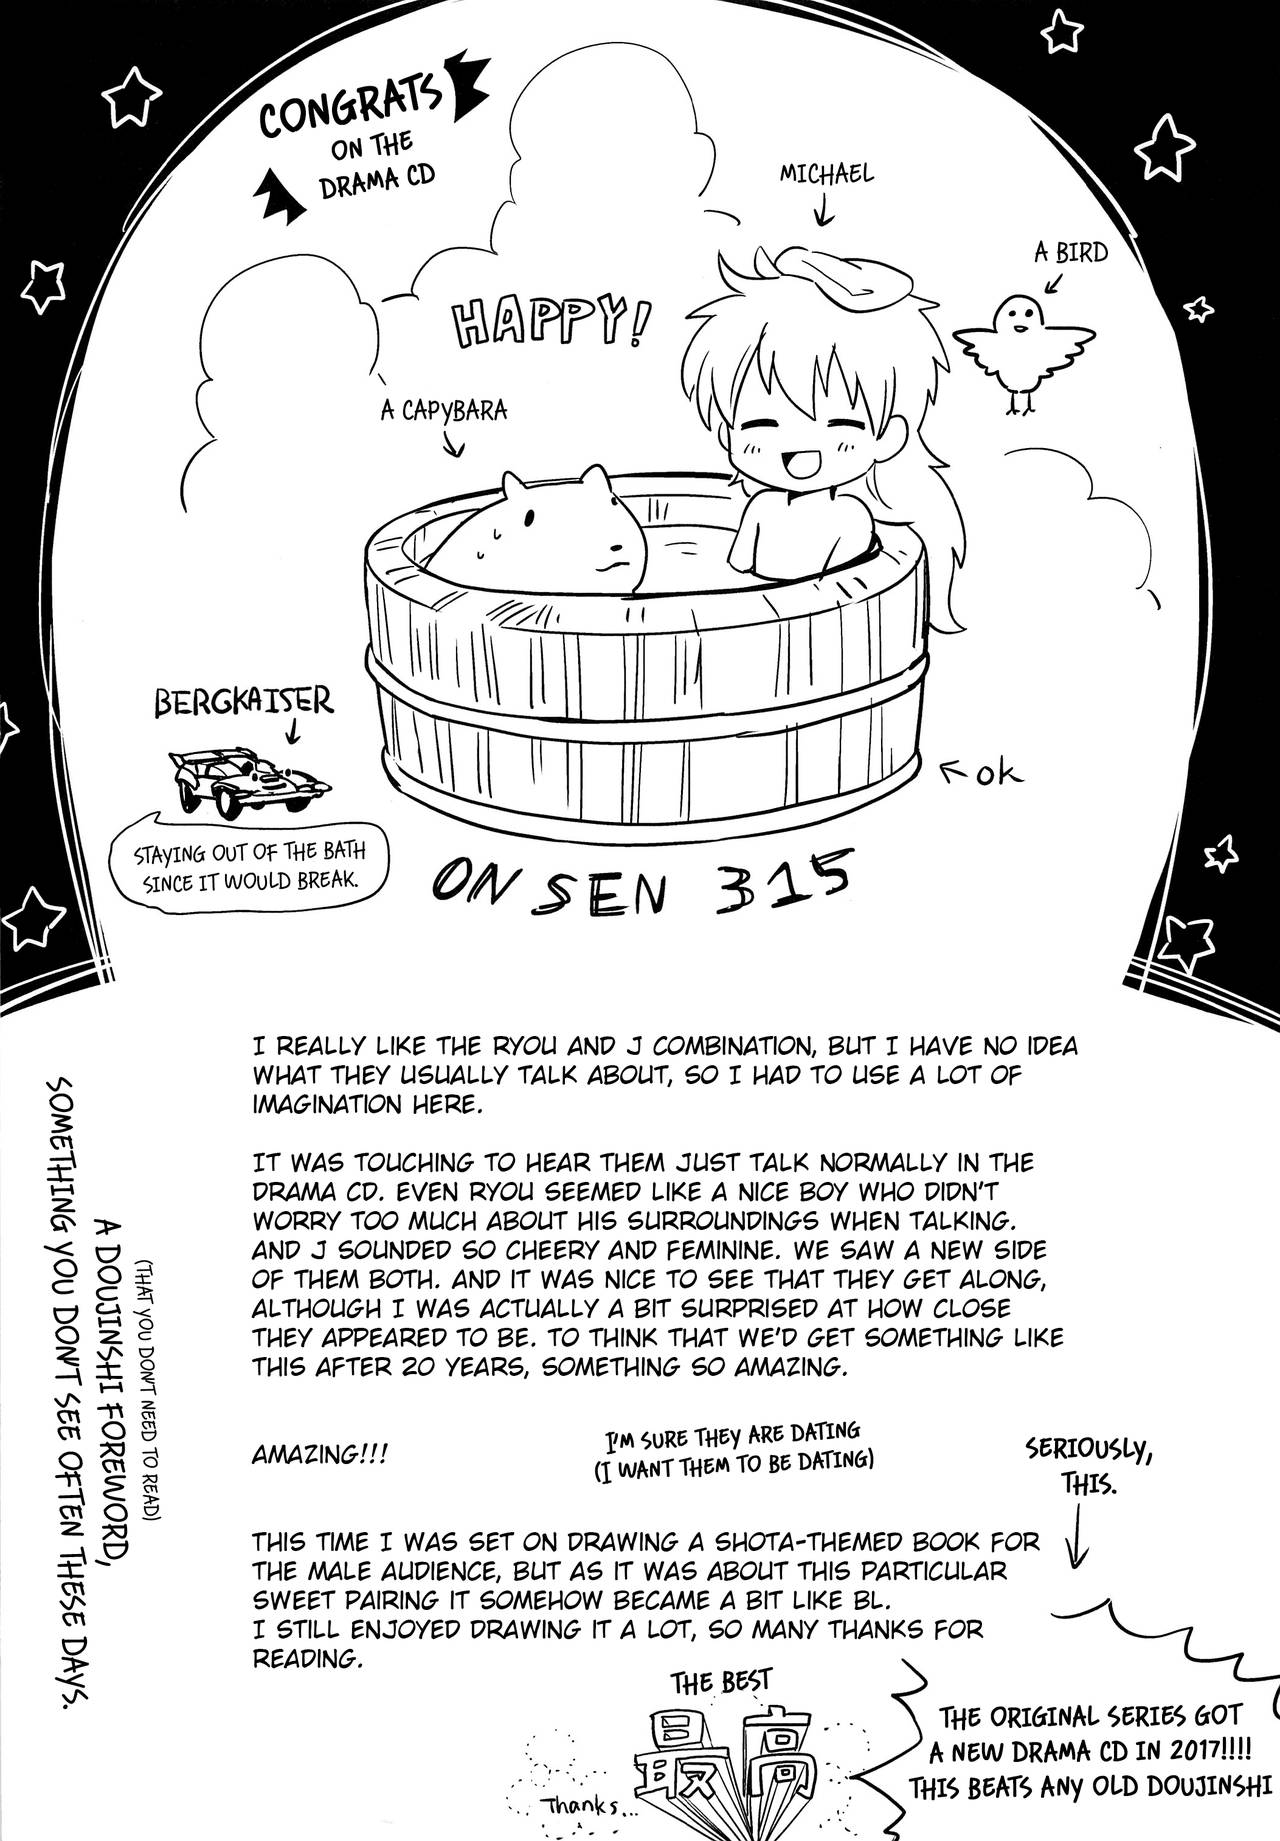 CONGRATS
ON THE
DRAMA CD
MICHAEL
A BIRD
HAPPY!
A CAPYBARA
BERGKAISER
STAYING OUT OF THE BATH
SINCE IT WOULD BREAK.
←OK
ONSEN 315
I REALLY LIKE THE RYOU AND J COMBINATION, BUT I HAVE NO IDEA
WHAT THEY USUALLY TALK ABOUT, SO I HAD TO USE A LOT OF
IMAGINATION HERE.
IT WAS TOUCHING TO HEAR THEM JUST TALK NORMALLY IN THE
DRAMA CD. EVEN RYOU SEEMED LIKE A NICE BOY WHO DIDN'T
WORRY TOO MUCH ABOUT HIS SURROUNDINGS WHEN TALKING.
AND J SOUNDED SO CHEERY AND FEMININE. WE SAW A NEW SIDE
OF THEM BOTH. AND IT WAS NICE TO SEE THAT THEY GET ALONG,
ALTHOUGH I WAS ACTUALLY A BIT SURPRISED AT HOW CLOSE
THEY APPEARED TO BE. TO THINK THAT WE'D GET SOMETHING LIKE
THIS AFTER 20 YEARS, SOMETHING SO AMAZING.
AMAZING!!!
I'M SURE THEY ARE DATING
(I WANT THEM TO BE DATING)
SERIOUSLY,
THIS.
THIS TIME I WAS SET ON DRAWING A SHOTA-THEMED BOOK FOR
THE MALE AUDIENCE, BUT AS IT WAS ABOUT THIS PARTICULAR
SWEET PAIRING IT SOMEHOW BECAME A BIT LIKE BL.
I STILL ENJOYED DRAWING IT A LOT, SO MANY THANKS FOR
READING.
(THAT YOU DON'T NEED TO READ)
A DOUJINSHI FOREWORD,
SOMETHING YOU DON'T SEE OFTEN THESE DAYS.
THE BEST
最高
Thanks...
THE ORIGINAL SERIES GOT
A NEW DRAMA CD IN 2017!!!!
THIS BEATS ANY OLD DOUJINSHI